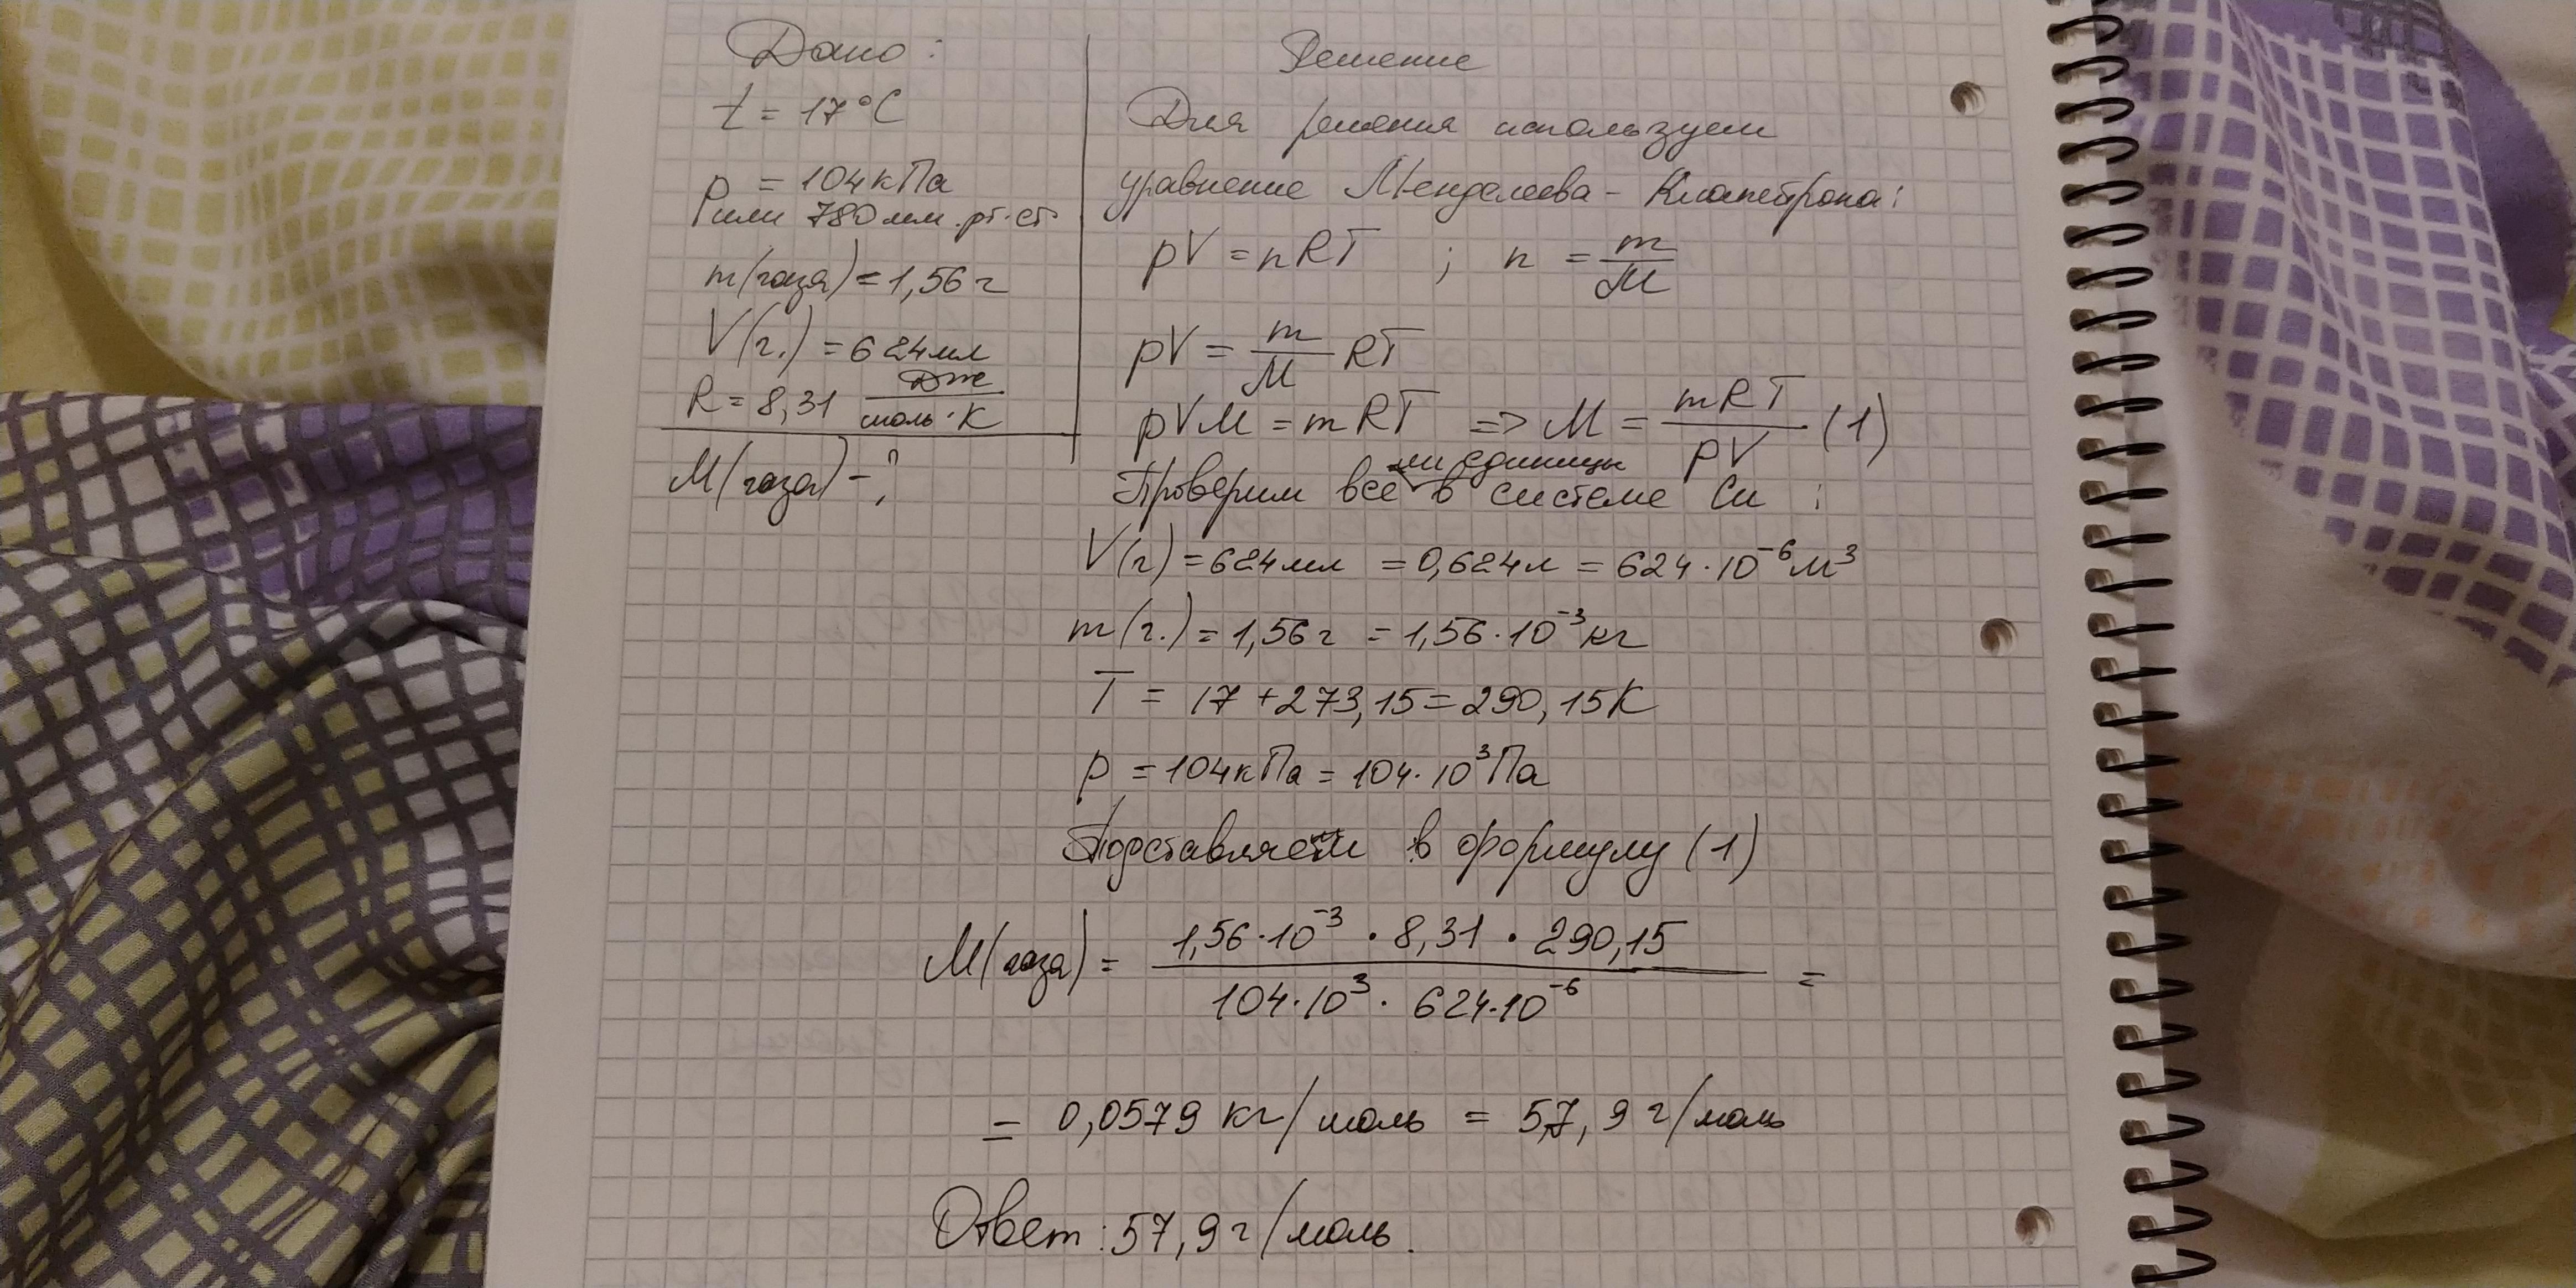 Дано:
t = 17°C
p = 104 кПа
или 780 мм.рт.ст
m(газа) = 1,56 г
V(г.) = 624 мл
R = 8,31 Дж/моль·К
M(газа) - ?
Решение
Для решения используем
уравнение Менделеева - Клапейрона:
pV = nRT ; n = m/M
pV = m/M RT
pVM = mRT => M = mRT/pV (1)
ми единицы
Проверим все в системе Си :
V(г) = 624 мл = 0,624 л = 624·10⁻⁶ м³
m(г.) = 1,56 г = 1,56·10⁻³ кг
T = 17 + 273,15 = 290,15 К
p = 104 кПа = 104·10³ Па
Подставляем в формулу (1)
M(газа) = 1,56·10⁻³ · 8,31 · 290,15 / 104·10³ · 624·10⁻⁶ =
= 0,0579 кг/моль = 57,9 г/моль
Ответ: 57,9 г/моль.